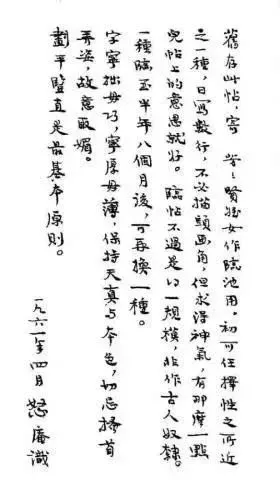 舊存此帖,寄 芳芳賢姪女作臨池用。初可任擇性之所近
之一種,日寫數行,不必描頭画角,但求得神氣,有那麼一點
兒帖上的意思就好。臨帖不過是得一規模,非作古人奴隸。
一種臨至半年八個月後,可再換一種。
字寧拙毋巧,寧厚毋薄,保持天真与本色,切忌搔首
弄姿,故意取媚。
劃平豎直是最基本原則。
一九六一年四月 怒庵識